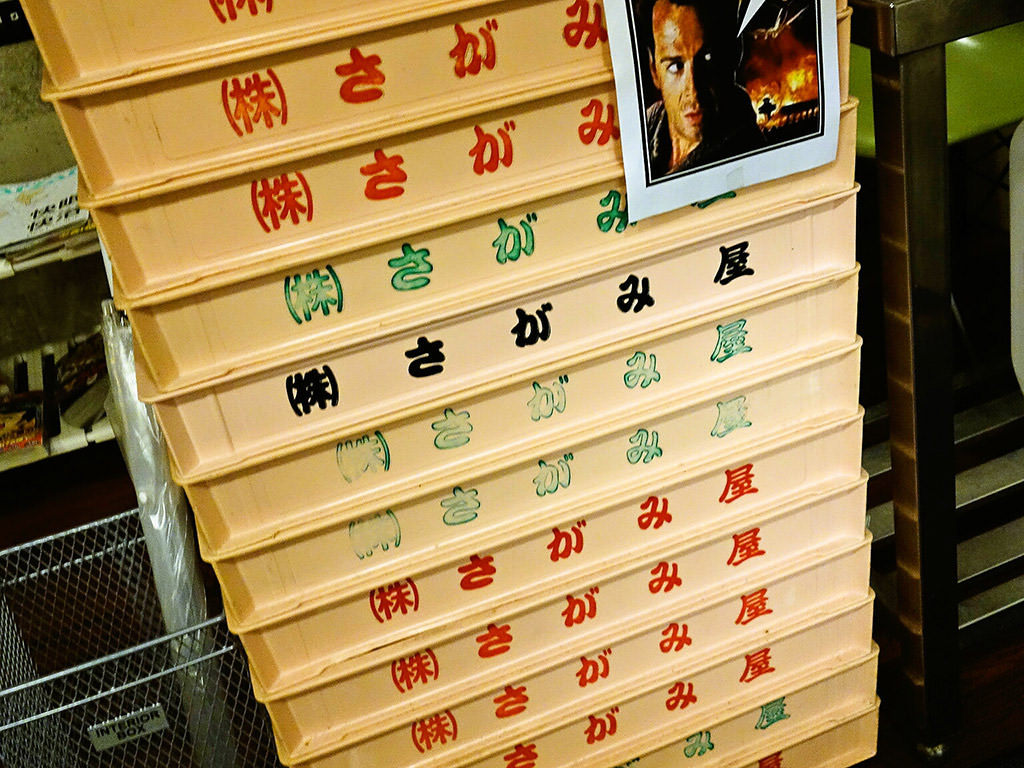 (株)さがみ
(株)さがみ
(株)さがみ
(株)さがみ屋
(株)さがみ屋
(株)さがみ屋
(株)さがみ屋
(株)さがみ屋
(株)さがみ屋
さがみ屋
み屋
INTERIOR
BOX